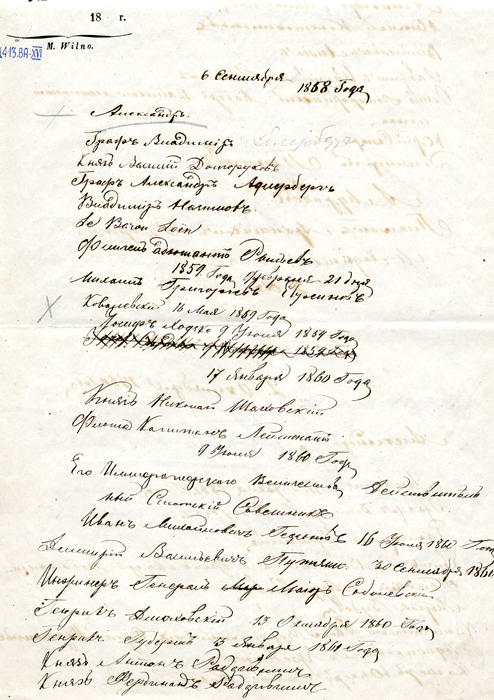 18 г.
M. Wilno.
1413.BA-XVI
6 Сентября
1858 Года
Александръ.
Графъ Владимiръ
Князь Василiй Долгоруковъ
Графъ Александръ Адлербергъ
Владимiръ Назимовъ.
Le Baron Loën
Флигель адъютантъ
1859 Года Февраля 21 дня
Михаилъ Григорьевъ
Ковалевскiй 16 Мая 1859 Года
Iосифъ Ходзко 9 Iюля 1859 Года
17 Января 1860 Года
Князь Николай Шаховскiй
Флота Капитанъ Лейтенантъ
9 Iюля 1860 Года
Его Императорскаго Величества Действитель
ный Статскiй Советникъ
Иванъ Михайловичъ 16 Iюля 1860 Года
Васильевичъ Путята 30 Сентября 1860
Инженеръ Генералъ Маiоръ Соболевскiй
Генрихъ Дмоховскiй 13 Октября 1860 Года
Генрихъ 3 Января 1861 Года
Князь Антонъ Радзивиллъ
Князь Фердинандъ Радзивиллъ